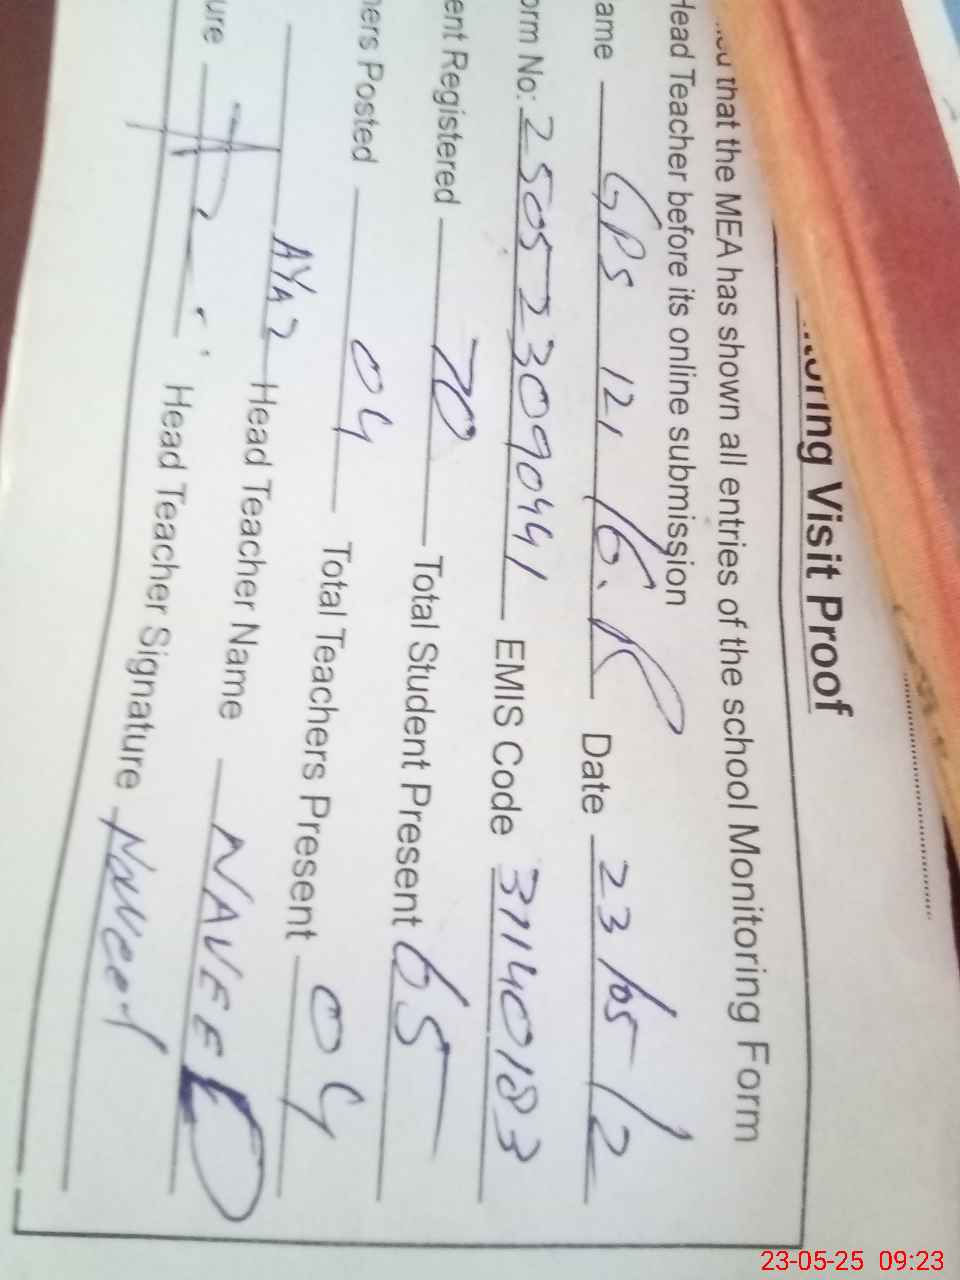 oring Visit Proof
that the MEA has shown all entries of the school Monitoring Form
Head Teacher before its online submission
ame GPS 12, 16.R Date 23/05/2
orm No: 250523090441 EMIS Code 31140183
ent Registered 70 Total Student Present 65
ers Posted 04 Total Teachers Present 04
AYAZ Head Teacher Name NAVEED
ure Head Teacher Signature Naveed
23-05-25 09:23